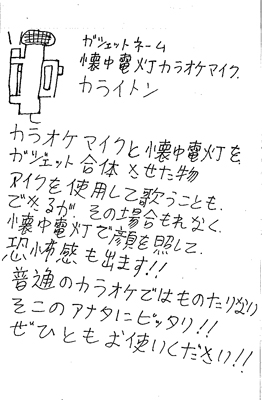 ガジェットネーム
懐中電灯カラオケマイク.
カライトン
カラオケマイクと懐中電灯を.
ガジェット合体させた物
マイクを使用して歌うことも.
できるが、その場合もれなく.
懐中電灯で顔を照して.
恐怖感も出ます!!
普通のカラオケではものたりない
そこのアナタにピッタリ!!
ぜひともお使いください!!